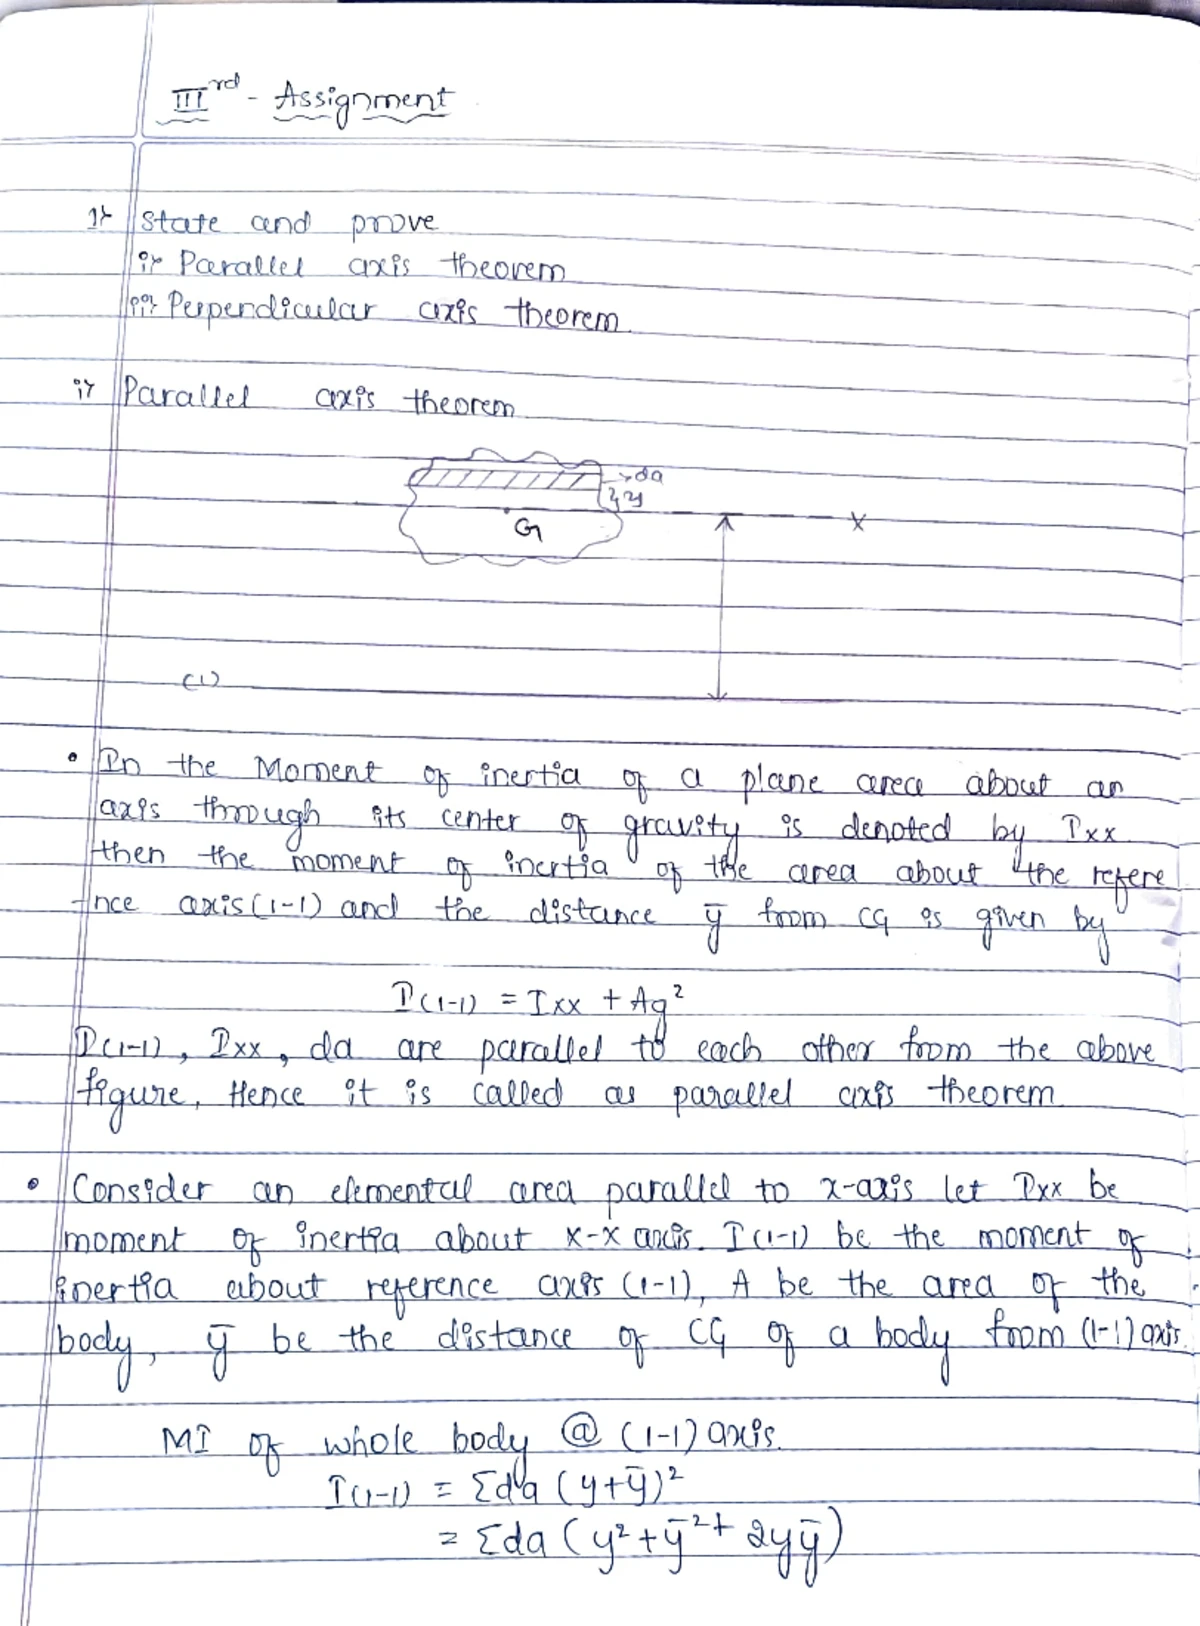 IIIrd - Assignment
1) State and prove
i) Parallel axis theorem
ii) Perpendicular axis theorem.
i) Parallel axis theorem
da
y
G
X
(1)
• In the Moment of inertia of a plane area about an
axis through its center of gravity is denoted by Ixx.
then the moment of inertia of the area about the refere
nce axis (1-1) and the distance ȳ from CG is given by
I(1-1) = Ixx + Ag²
I(1-1), Ixx, da are parallel to each other from the above
figure, Hence it is called as parallel axis theorem
• Consider an elemental area parallel to x-axis let Ixx be
moment of inertia about x-x axis. I(1-1) be the moment of
inertia about reference axis (1-1), A be the area of the
body, ȳ be the distance of CG of a body from (1-1) axis.
MI of whole body @ (1-1) axis.
I(1-1) = Σda (y+ȳ)²
= Σda (y²+ȳ²+ 2yȳ)